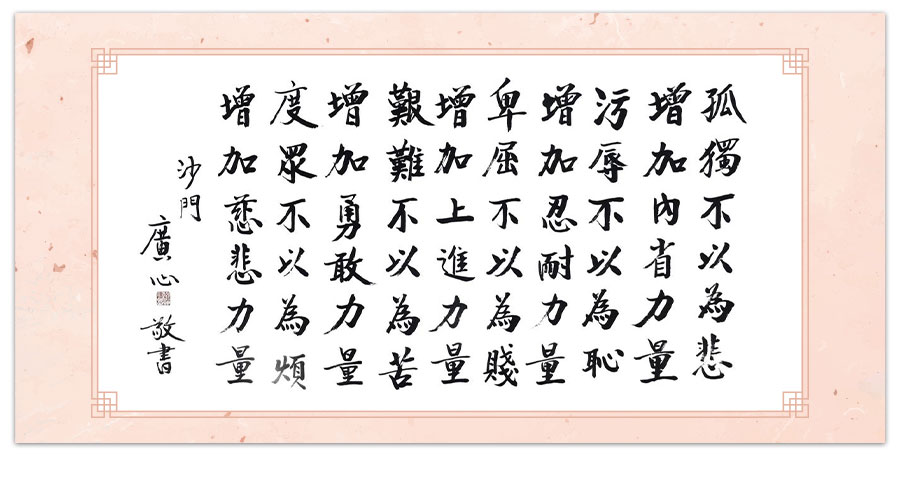 孤獨不以為悲
增加內省力量
污辱不以為恥
增加忍耐力量
卑屈不以為賤
增加上進力量
艱難不以為苦
增加勇敢力量
度眾不以為煩
增加慈悲力量
沙門
廣心
敬書